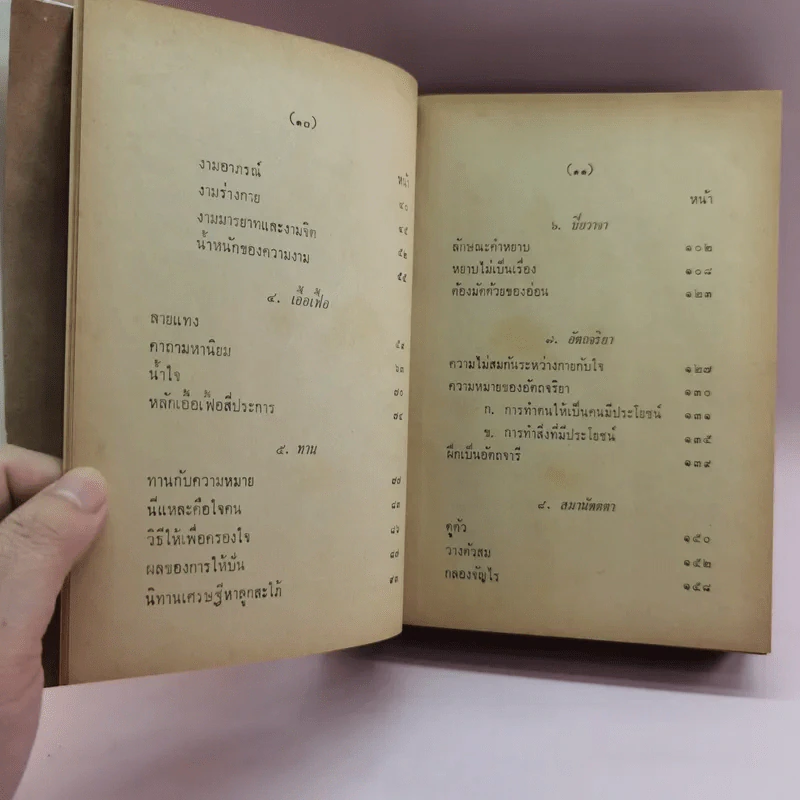 (๑๐)
หน้า
งามอาภรณ์ ๔๐
งามร่างกาย ๔๕
งามมารยาทและงามจิต ๕๒
น้ำหนักของความงาม ๕๕
๔. เอื้อเฟื้อ
สายแทง
คาถามหานิยม ๖๓
น้ำใจ ๗๐
หลักเอื้อเฟื้อสี่ประการ ๗๔
๕. ทาน
ทานกับความหมาย
นี่แหละคือใจคน
วิธีให้เพื่อครองใจ ๘๖
ผลของการให้ปัน ๘๗
นิทานเศรษฐีหาลูกสะใภ้ ๙๓
(๑๑)
หน้า
๖. ปิยวาจา
ลักษณะคำหยาบ ๑๐๒
หยาบไม่เป็นเรื่อง ๑๐๘
ต้องมัดด้วยของอ่อน ๑๒๓
๗. อัตถจริยา
ความไม่สมกันระหว่างกายกับใจ ๑๒๗
ความหมายของอัตถจริยา ๑๓๐
ก. การทำตนให้เป็นคนมีประโยชน์ ๑๓๑
ข. การทำสิ่งที่มีประโยชน์ ๑๓๕
ฝึกเป็นอัตถจารี ๑๓๙
๘. สมานัตตตา
ดูตัว ๑๕๐
วางตัวสม ๑๕๒
กลองจัญไร ๑๕๘